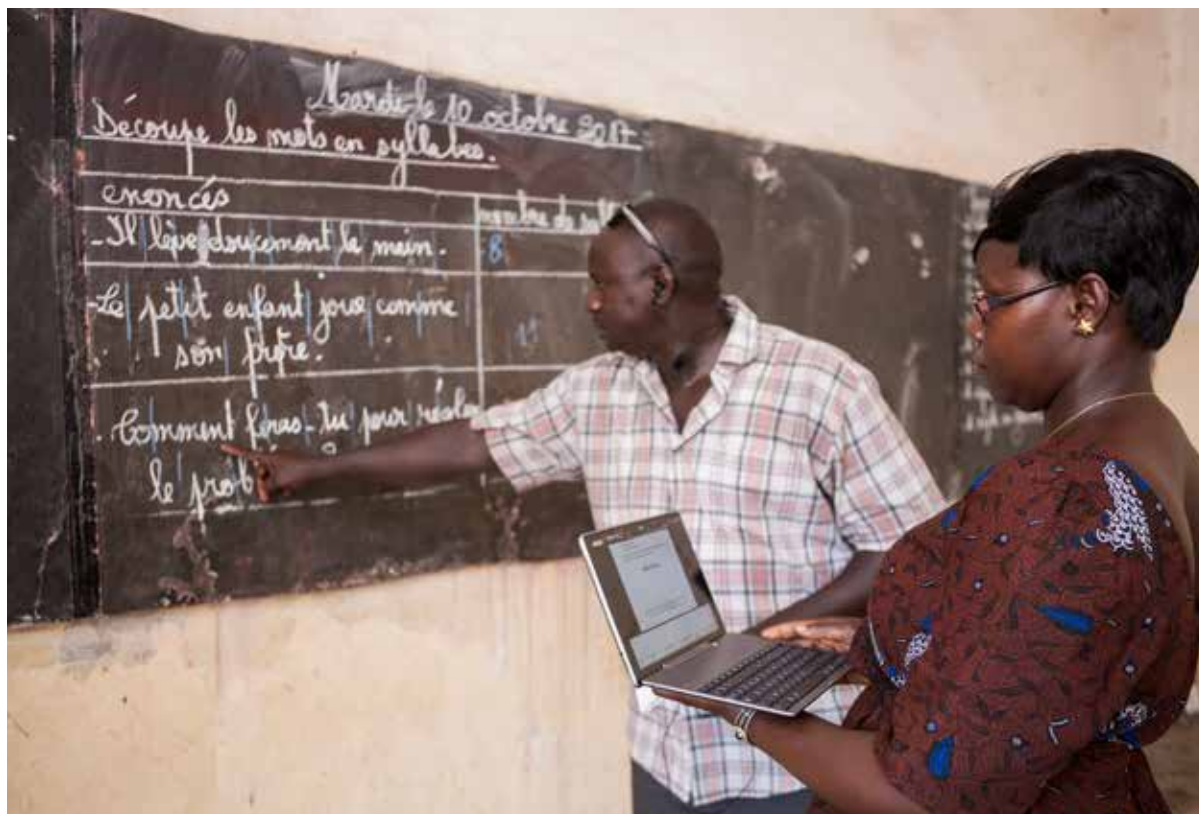 Mardi le 10 octobre 2017
Découpe les mots en syllabes.
enoncés
nombre de syll
- Il lève doucement la main.
8
- Le petit enfant joue comme
son frère.
11
. Comment feras-tu pour régler
le prob